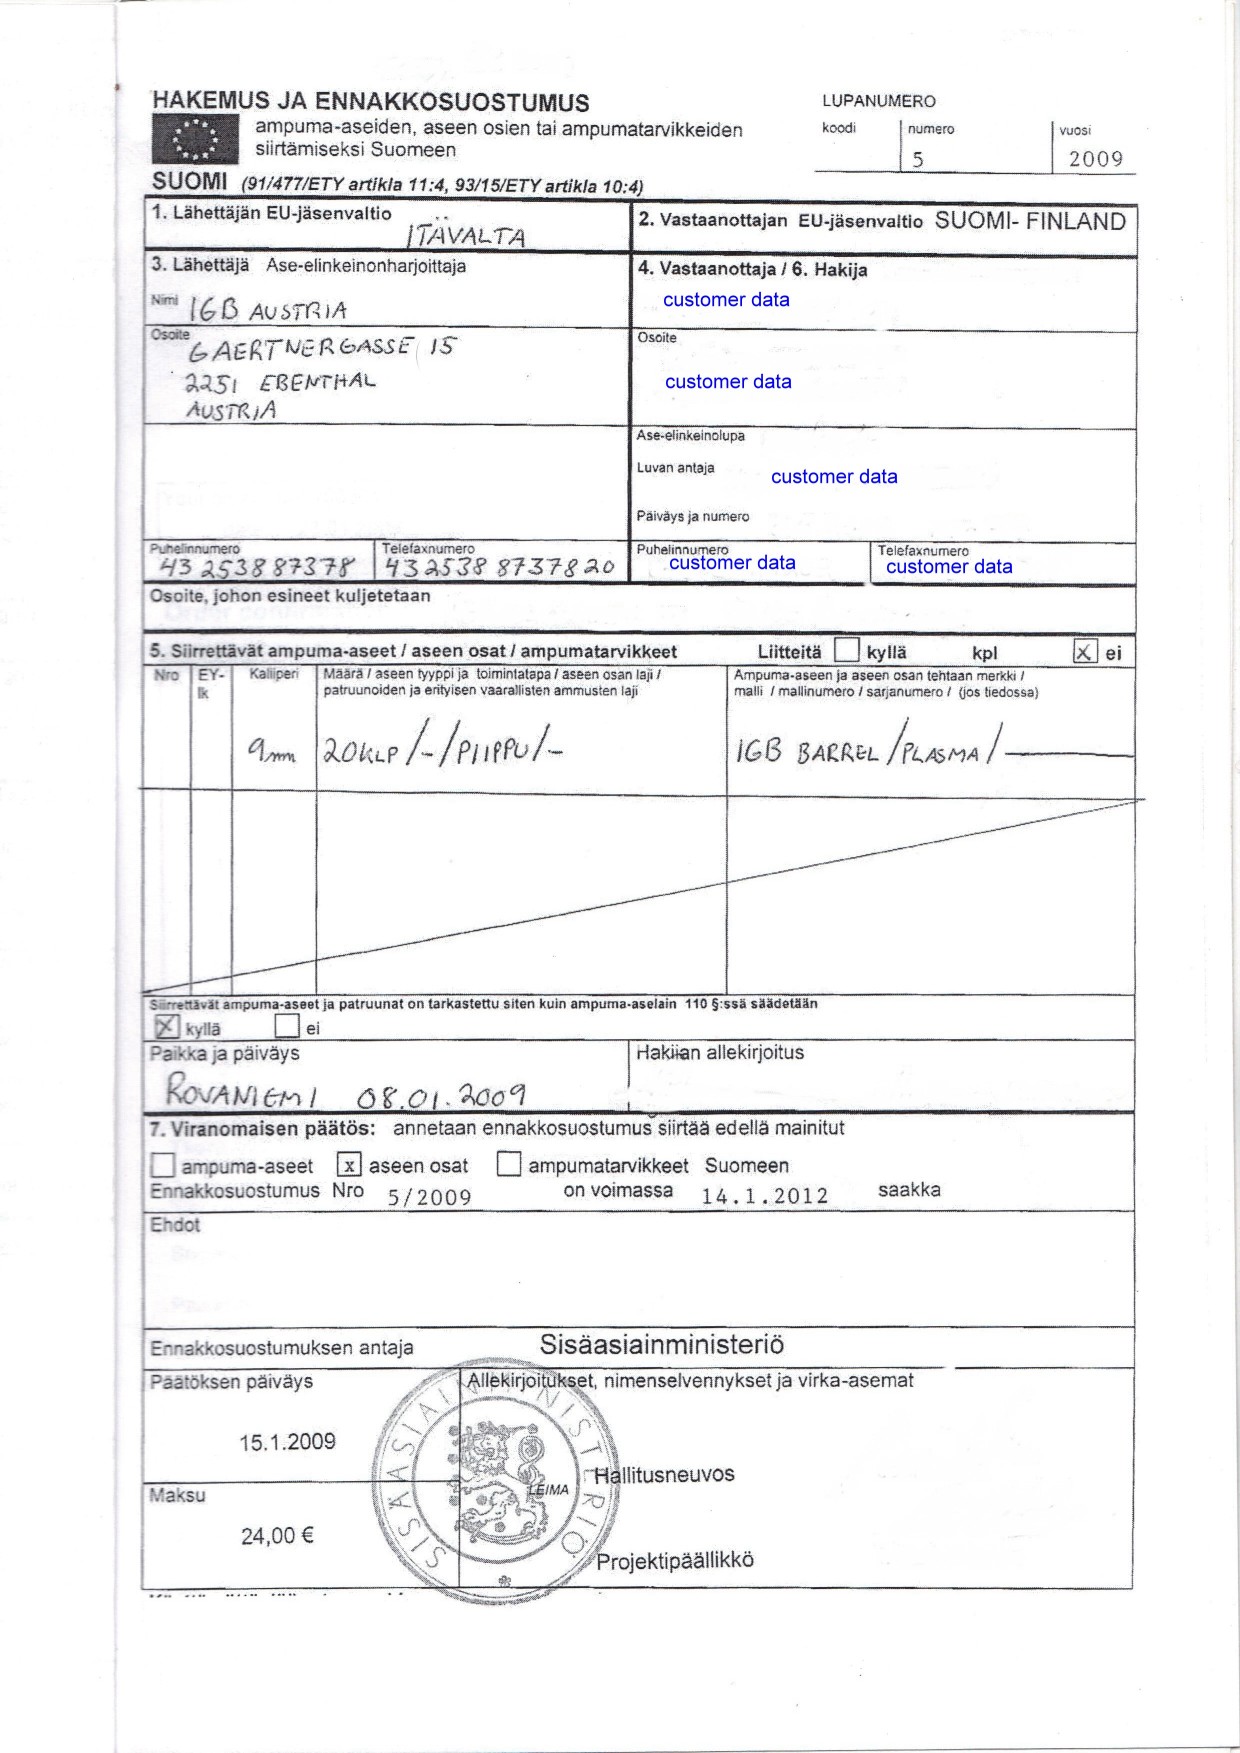 HAKEMUS JA ENNAKKOSUOSTUMUS
ampuma-aseiden, aseen osien tai ampumatarvikkeiden
siirtämiseksi Suomeen
SUOMI (91/477/ETY artikla 11:4, 93/15/ETY artikla 10:4)
LUPANUMERO
koodi numero vuosi
5 2009
1. Lähettäjän EU-jäsenvaltio
ITÄVALTA
2. Vastaanottajan EU-jäsenvaltio SUOMI- FINLAND
3. Lähettäjä Ase-elinkeinonharjoittaja
Nimi IGB AUSTRIA
Osoite
GAERTNERGASSE 15
2251 EBENTHAL
AUSTRIA
4. Vastaanottaja / 6. Hakija
customer data
Osoite
customer data
Ase-elinkeinolupa
Luvan antaja
customer data
Päiväys ja numero
Puhelinnumero
43 253887378
Telefaxnumero
43 2538 8737820
Puhelinnumero
customer data
Telefaxnumero
customer data
Osoite, johon esineet kuljetetaan
5. Siirrettävät ampuma-aseet / aseen osat / ampumatarvikkeet Liitteitä kyllä kpl X ei
Nro EY-lk Kaliiperi
Määrä / aseen tyyppi ja toimintatapa / aseen osan laji /
patruunoiden ja erityisen vaarallisten ammusten laji
Ampuma-aseen ja aseen osan tehtaan merkki /
malli / mallinumero / sarjanumero / (jos tiedossa)
9mm 20KLP/-/PIIPPU/- IGB BARREL/PLASMA/
Siirrettävät ampuma-aseet ja patruunat on tarkastettu siten kuin ampuma-aselain 110 §:ssä säädetään
X kyllä ei
Paikka ja päiväys
ROVANIEMI 08.01.2009
Hakijan allekirjoitus
7. Viranomaisen päätös: annetaan ennakkosuostumus siirtää edellä mainitut
ampuma-aseet x aseen osat ampumatarvikkeet Suomeen
Ennakkosuostumus Nro 5/2009 on voimassa 14.1.2012 saakka
Ehdot
Ennakkosuostumuksen antaja Sisäasiainministeriö
Päätöksen päiväys
15.1.2009
Maksu
24,00 €
Allekirjoitukset, nimenselvennykset ja virka-asemat
SISÄASIAINMINISTERIÖ
LEIMA
Hallitusneuvos
Projektipäällikkö